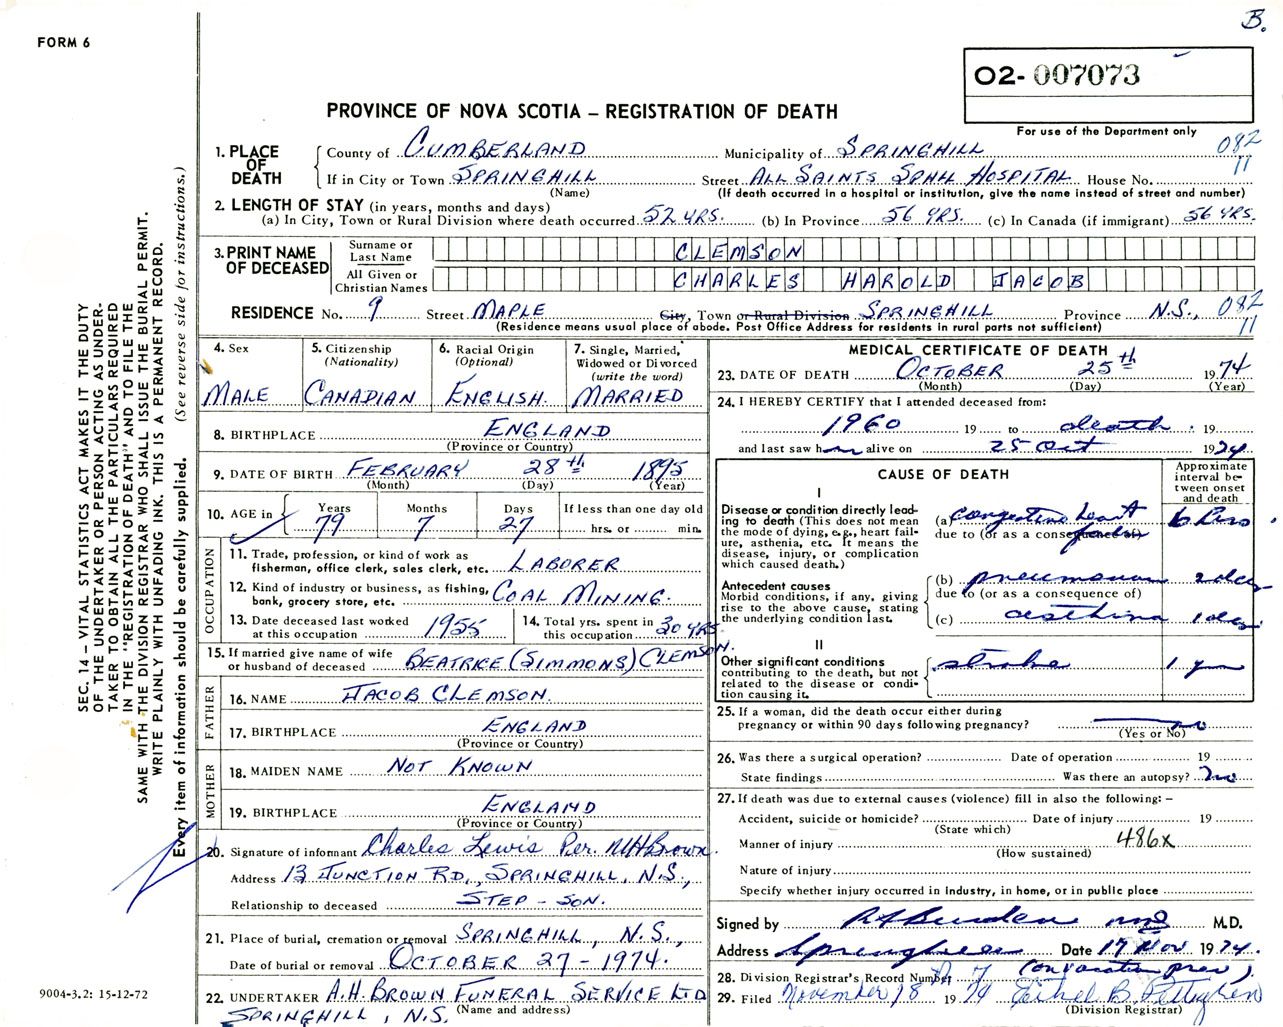 B.
FORM 6
O2-007073
PROVINCE OF NOVA SCOTIA – REGISTRATION OF DEATH
For use of the Department only
1. PLACE OF DEATH
County of CUMBERLAND Municipality of SPRINGHILL 082
If in City or Town SPRINGHILL Street ALL SAINTS SPHLL HOSPITAL House No. 11
(Name) (If death occurred in a hospital or institution, give the name instead of street and number)
2. LENGTH OF STAY (in years, months and days)
(a) In City, Town or Rural Division where death occurred 52 YRS. (b) In Province 56 YRS. (c) In Canada (if immigrant) 56 YRS.
3. PRINT NAME OF DECEASED
Surname or Last Name CLEMSON
All Given or Christian Names CHARLES HAROLD JACOB
RESIDENCE No. 9 Street MAPLE City, Town or Rural Division SPRINGHILL Province N.S., 082
(Residence means usual place of abode. Post Office Address for residents in rural parts not sufficient) 11
4. Sex
MALE
5. Citizenship
(Nationality)
CANADIAN
6. Racial Origin
(Optional)
ENGLISH.
7. Single, Married, Widowed or Divorced
(write the word)
MARRIED
8. BIRTHPLACE ENGLAND
(Province or Country)
9. DATE OF BIRTH FEBRUARY 28th 1895
(Month) (Day) (Year)
10. AGE in
Years Months Days If less than one day old
79 7 27 hrs. or min.
OCCUPATION
11. Trade, profession, or kind of work as
fisherman, office clerk, sales clerk, etc. LABORER
12. Kind of industry or business, as fishing,
bank, grocery store, etc. COAL MINING.
13. Date deceased last worked
at this occupation 1955
14. Total yrs. spent in
this occupation 30 YRS.
15. If married give name of wife
or husband of deceased BEATRICE (SIMMONS) CLEMSON.
FATHER
16. NAME JACOB CLEMSON.
17. BIRTHPLACE ENGLAND
(Province or Country)
MOTHER
18. MAIDEN NAME NOT KNOWN
19. BIRTHPLACE ENGLAND
(Province or Country)
20. Signature of informant Charles Lewis Per. MHBrown.
Address 13 JUNCTION RD., SPRINGHILL, N.S.,
Relationship to deceased STEP - SON.
21. Place of burial, cremation or removal SPRINGHILL, N.S.,
Date of burial or removal OCTOBER 27 - 1974.
22. UNDERTAKER A.H. BROWN FUNERAL SERVICE LTD
SPRINGHILL, N.S. (Name and address)
MEDICAL CERTIFICATE OF DEATH
23. DATE OF DEATH OCTOBER 25th 1974
(Month) (Day) (Year)
24. I HEREBY CERTIFY that I attended deceased from:
1960 19 to death 19
and last saw him alive on 25 Oct 1974
CAUSE OF DEATH
Approximate interval between onset and death
I
Disease or condition directly leading to death (This does not mean the mode of dying, e.g., heart failure, asthenia, etc. It means the disease, injury, or complication which caused death.)
(a) congestive heart
due to (or as a consequence of) failure
Antecedent causes
Morbid conditions, if any, giving rise to the above cause, stating the underlying condition last.
(b) pneumonia 2 days
due to (or as a consequence of)
(c) asthma 1 day
II
Other significant conditions
contributing to the death, but not related to the disease or condition causing it.
stroke 1 yr
25. If a woman, did the death occur either during
pregnancy or within 90 days following pregnancy? no
(Yes or No)
26. Was there a surgical operation? Date of operation 19
State findings Was there an autopsy? no
27. If death was due to external causes (violence) fill in also the following: –
Accident, suicide or homicide? Date of injury 19
(State which)
Manner of injury 486X
(How sustained)
Nature of injury
Specify whether injury occurred in industry, in home, or in public place
Signed by M.D.
Address Springhill Date 17 Nov 1974.
28. Division Registrar's Record Number 7
29. Filed November 18 1974 Ethel B.
(Division Registrar)
SEC. 14 – VITAL STATISTICS ACT MAKES IT THE DUTY
OF THE UNDERTAKER OR PERSON ACTING AS UNDER-
TAKER TO OBTAIN ALL THE PARTICULARS REQUIRED
IN THE "REGISTRATION OF DEATH" AND TO FILE THE
SAME WITH THE DIVISION REGISTRAR WHO SHALL ISSUE THE BURIAL PERMIT.
WRITE PLAINLY WITH UNFADING INK. THIS IS A PERMANENT RECORD.
Every item of information should be carefully supplied. (See reverse side for instructions.)
9004-3.2: 15-12-72